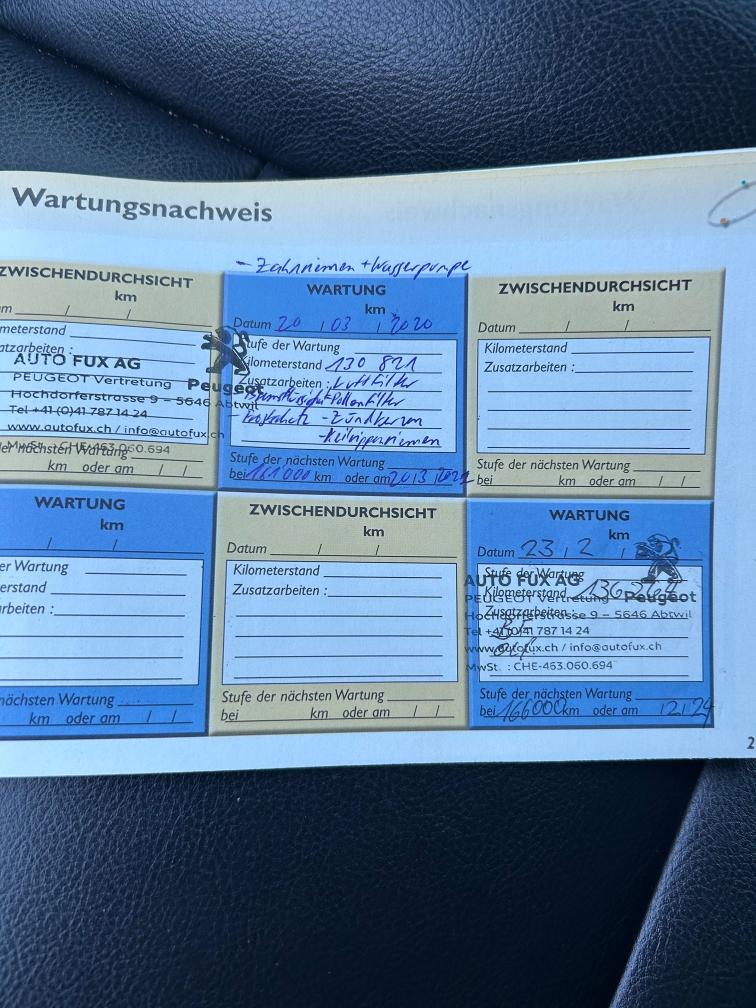 Wartungsnachweis
ZWISCHENDURCHSICHT
km
m / /
meterstand
atzarbeiten :
AUTO FUX AG
PEUGEOT Vertretung
Hochdorferstrasse 9 – 5646 Abtwil
Tel +41 (0)41 787 14 24
www.autofux.ch / info@autofux.ch
MwSt. : CHE-463.060.694
Peugeot
der nächsten Wartung
km oder am / /
- Zahnriemen + Wasserpumpe
WARTUNG
km
Datum 20 / 03 / 2020
tufe der Wartung
Kilometerstand 130 821
Zusatzarbeiten : Luftfilter
Bremsflüssigkeit Pollenfilter
- Zündkerzen
- Keilrippenriemen
Stufe der nächsten Wartung
bei 161000 km oder am 20/3/2021
ZWISCHENDURCHSICHT
km
Datum / /
Kilometerstand
Zusatzarbeiten :
Stufe der nächsten Wartung
bei km oder am / /
WARTUNG
km
/ /
er Wartung
erstand
rbeiten :
nächsten Wartung
km oder am / /
ZWISCHENDURCHSICHT
km
Datum / /
Kilometerstand
Zusatzarbeiten :
Stufe der nächsten Wartung
bei km oder am / /
WARTUNG
km
Datum 23 / 2 /
Stufe der Wartung
Kilometerstand
Zusatzarbeiten :
AUTO FUX AG
PEUGEOT Vertretung
Peugeot
Hochdorferstrasse 9 – 5646 Abtwil
Tel +41 (0)41 787 14 24
www.autofux.ch / info@autofux.ch
MwSt. : CHE-463.060.694
Stufe der nächsten Wartung
bei 166000 km oder am
2